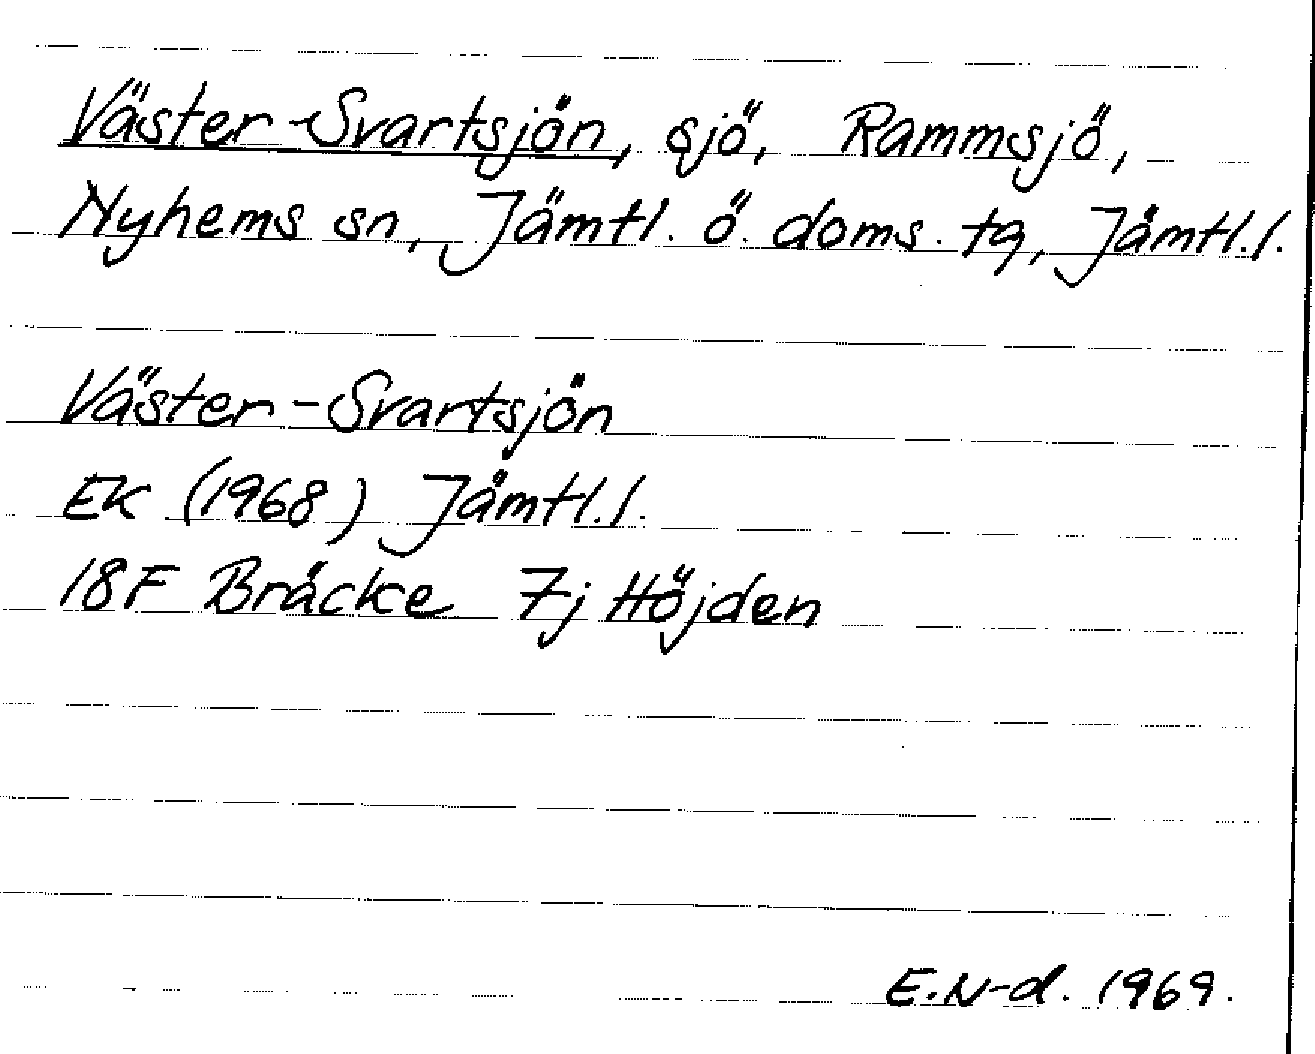 Väster-Svartsjön, sjö, Rammsjö,
Nyhems sn, Jämtl. ö. doms. tg, Jämtl.l.
Väster-Svartsjön
EK (1968) Jämtl.l.
18F Bräcke 7j Höjden
E.N-d. 1969.